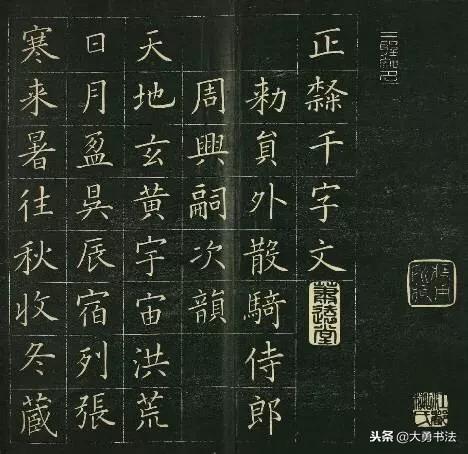 正隸千字文
勑貟外散騎侍郎
周興嗣次韻
天地玄黄宇宙洪荒
日月盈昃辰宿列張
寒来暑往秋收冬藏
头条 @大勇书法